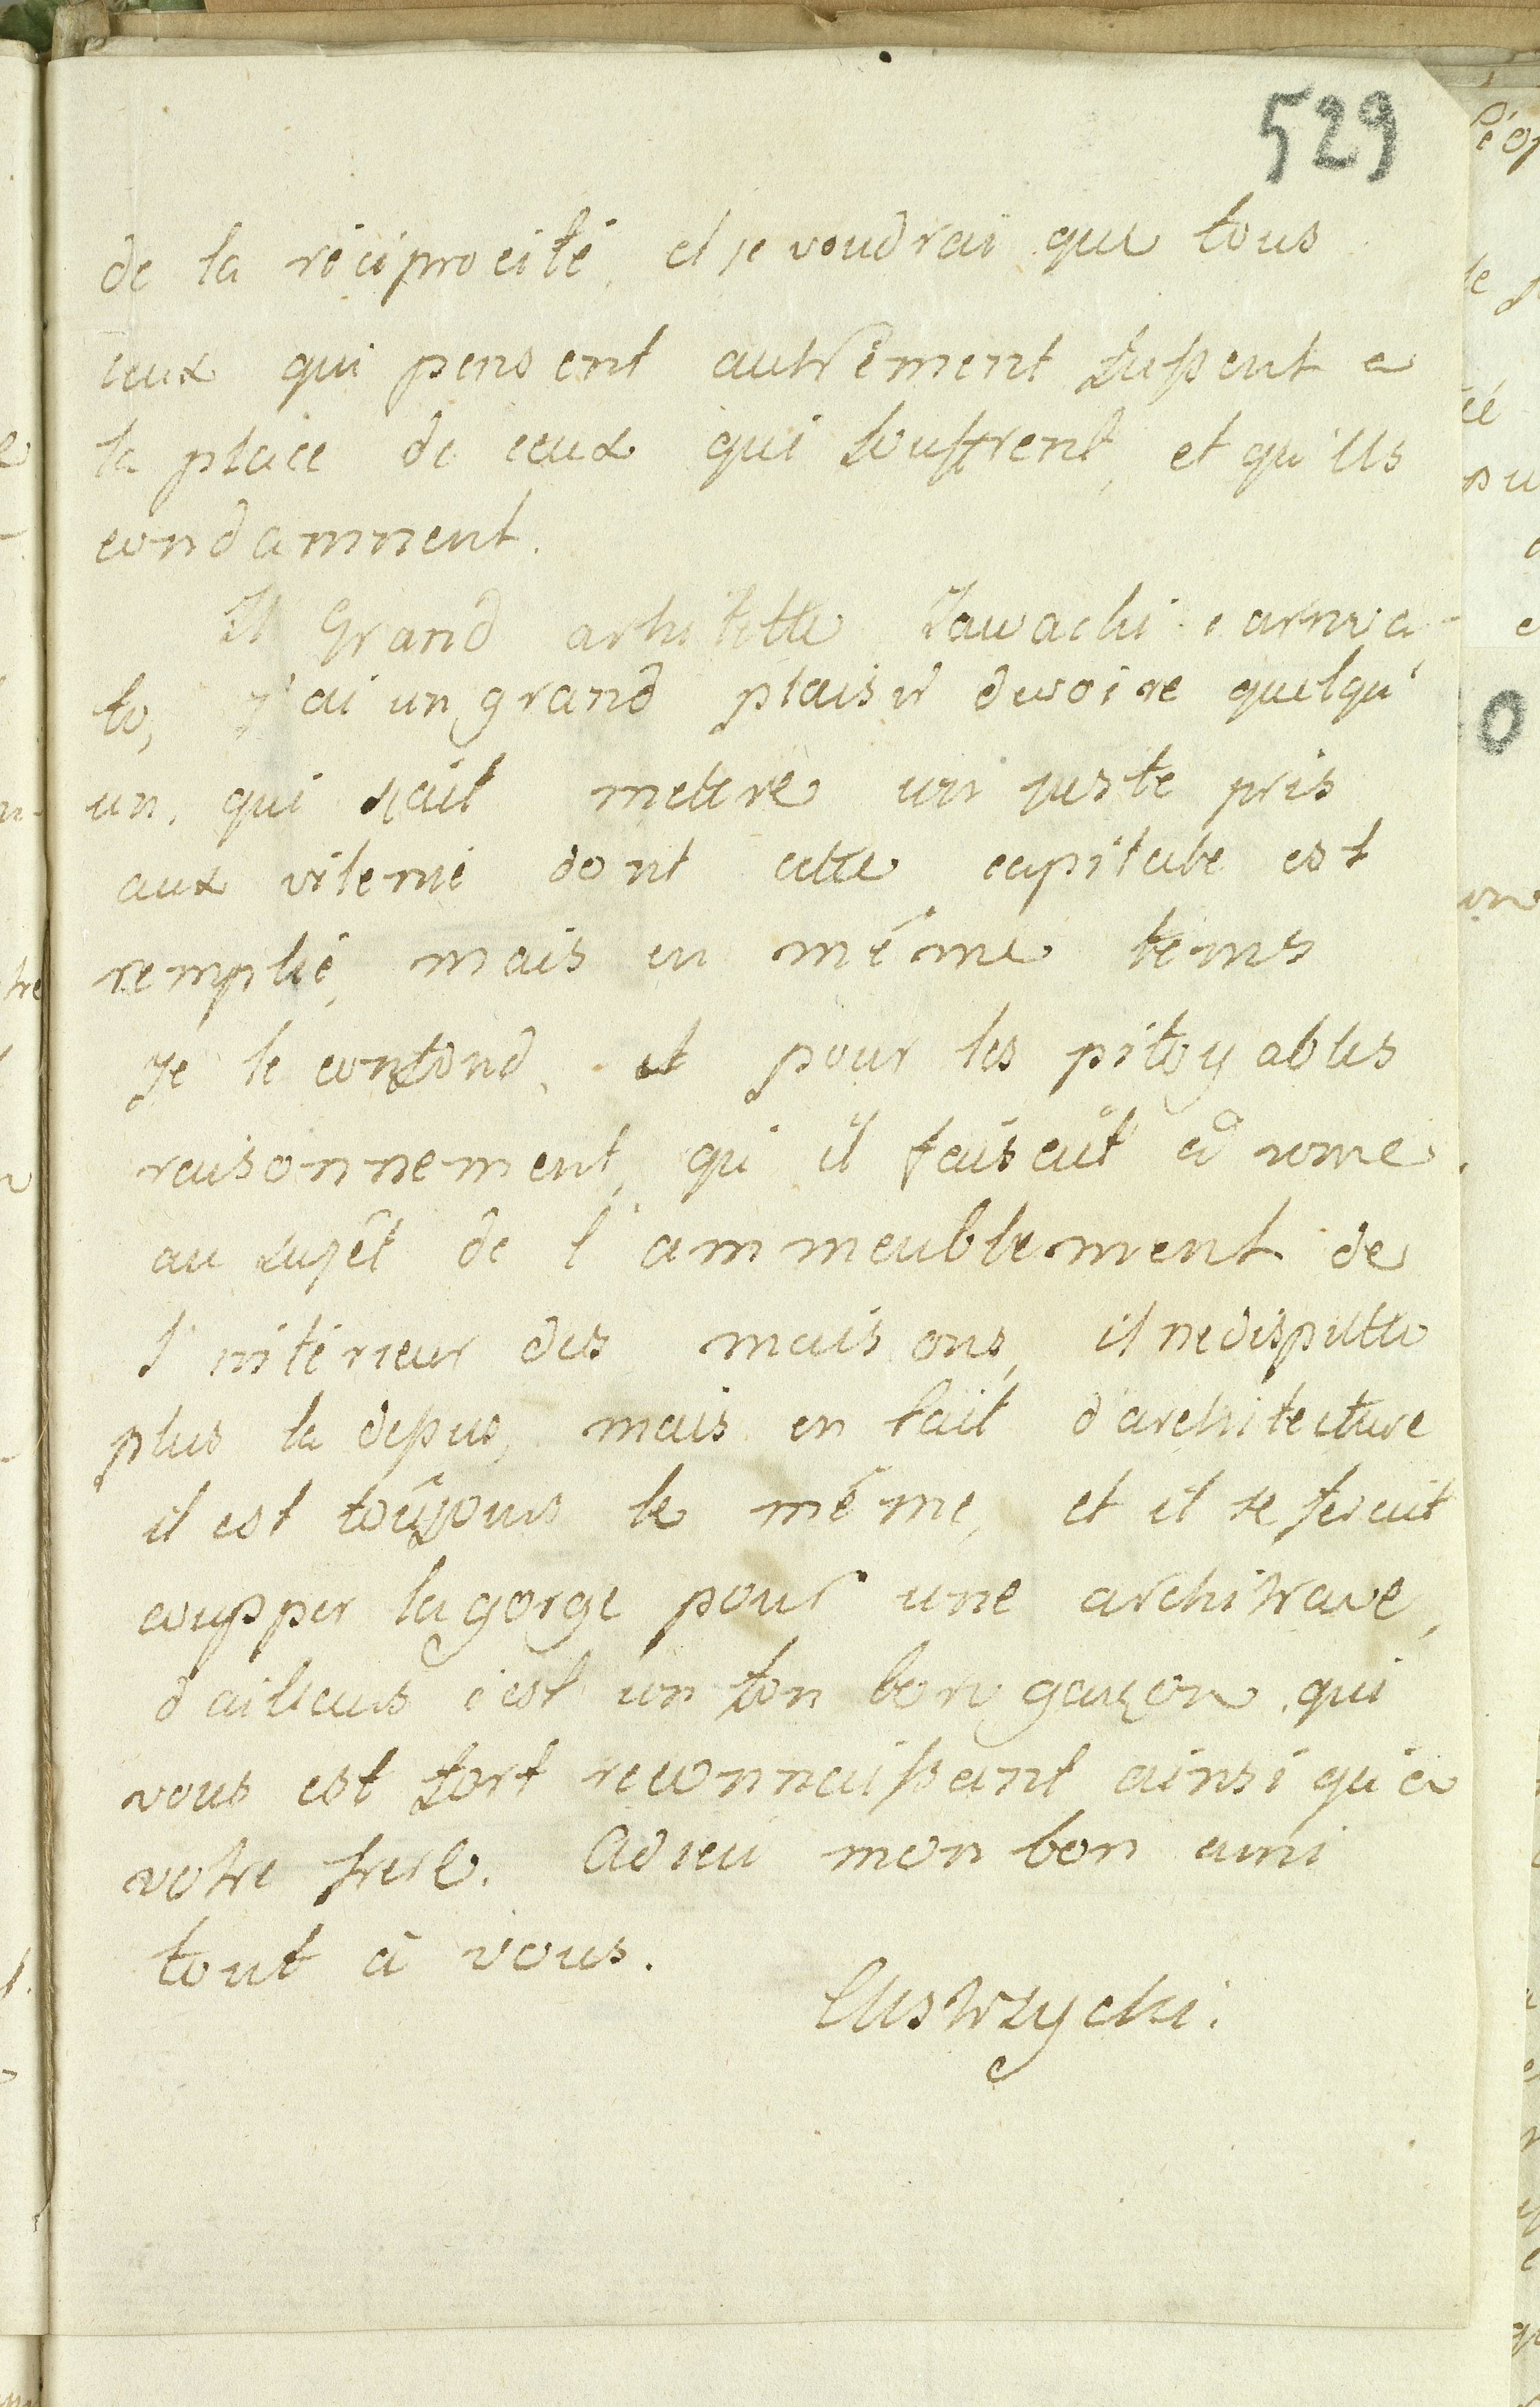 529
de la réciprocité, et je voudrai que tous
ceux qui pensent autrement fussent a
la place de ceux qui souffrent, et qu'ils
condamnent.
Il Grand arhitetto Zawachi e arriva-
to, j'ai un grand plaisir d'avoire quelqu'
un, qui sçait mettre un juste pris
aux vilenie dont cette capitale est
remplie, mais en même tems
je le confond, et pour les pitoyables
raisonnement, qu'il faisait à rome
au sujêt de l'ammeublement de
l'intérieur des maisons, il ne disputte
plus la dessus, mais en fait d'architecture
il est toûjours le même, et il se ferait
coupper la gorge pour une architrave,
d'ailleurs c'est un bon garçon, qui
vous est fort reconnaissant ainsi qu'a
votre frere. Adieu mon bon ami
tout à vous.